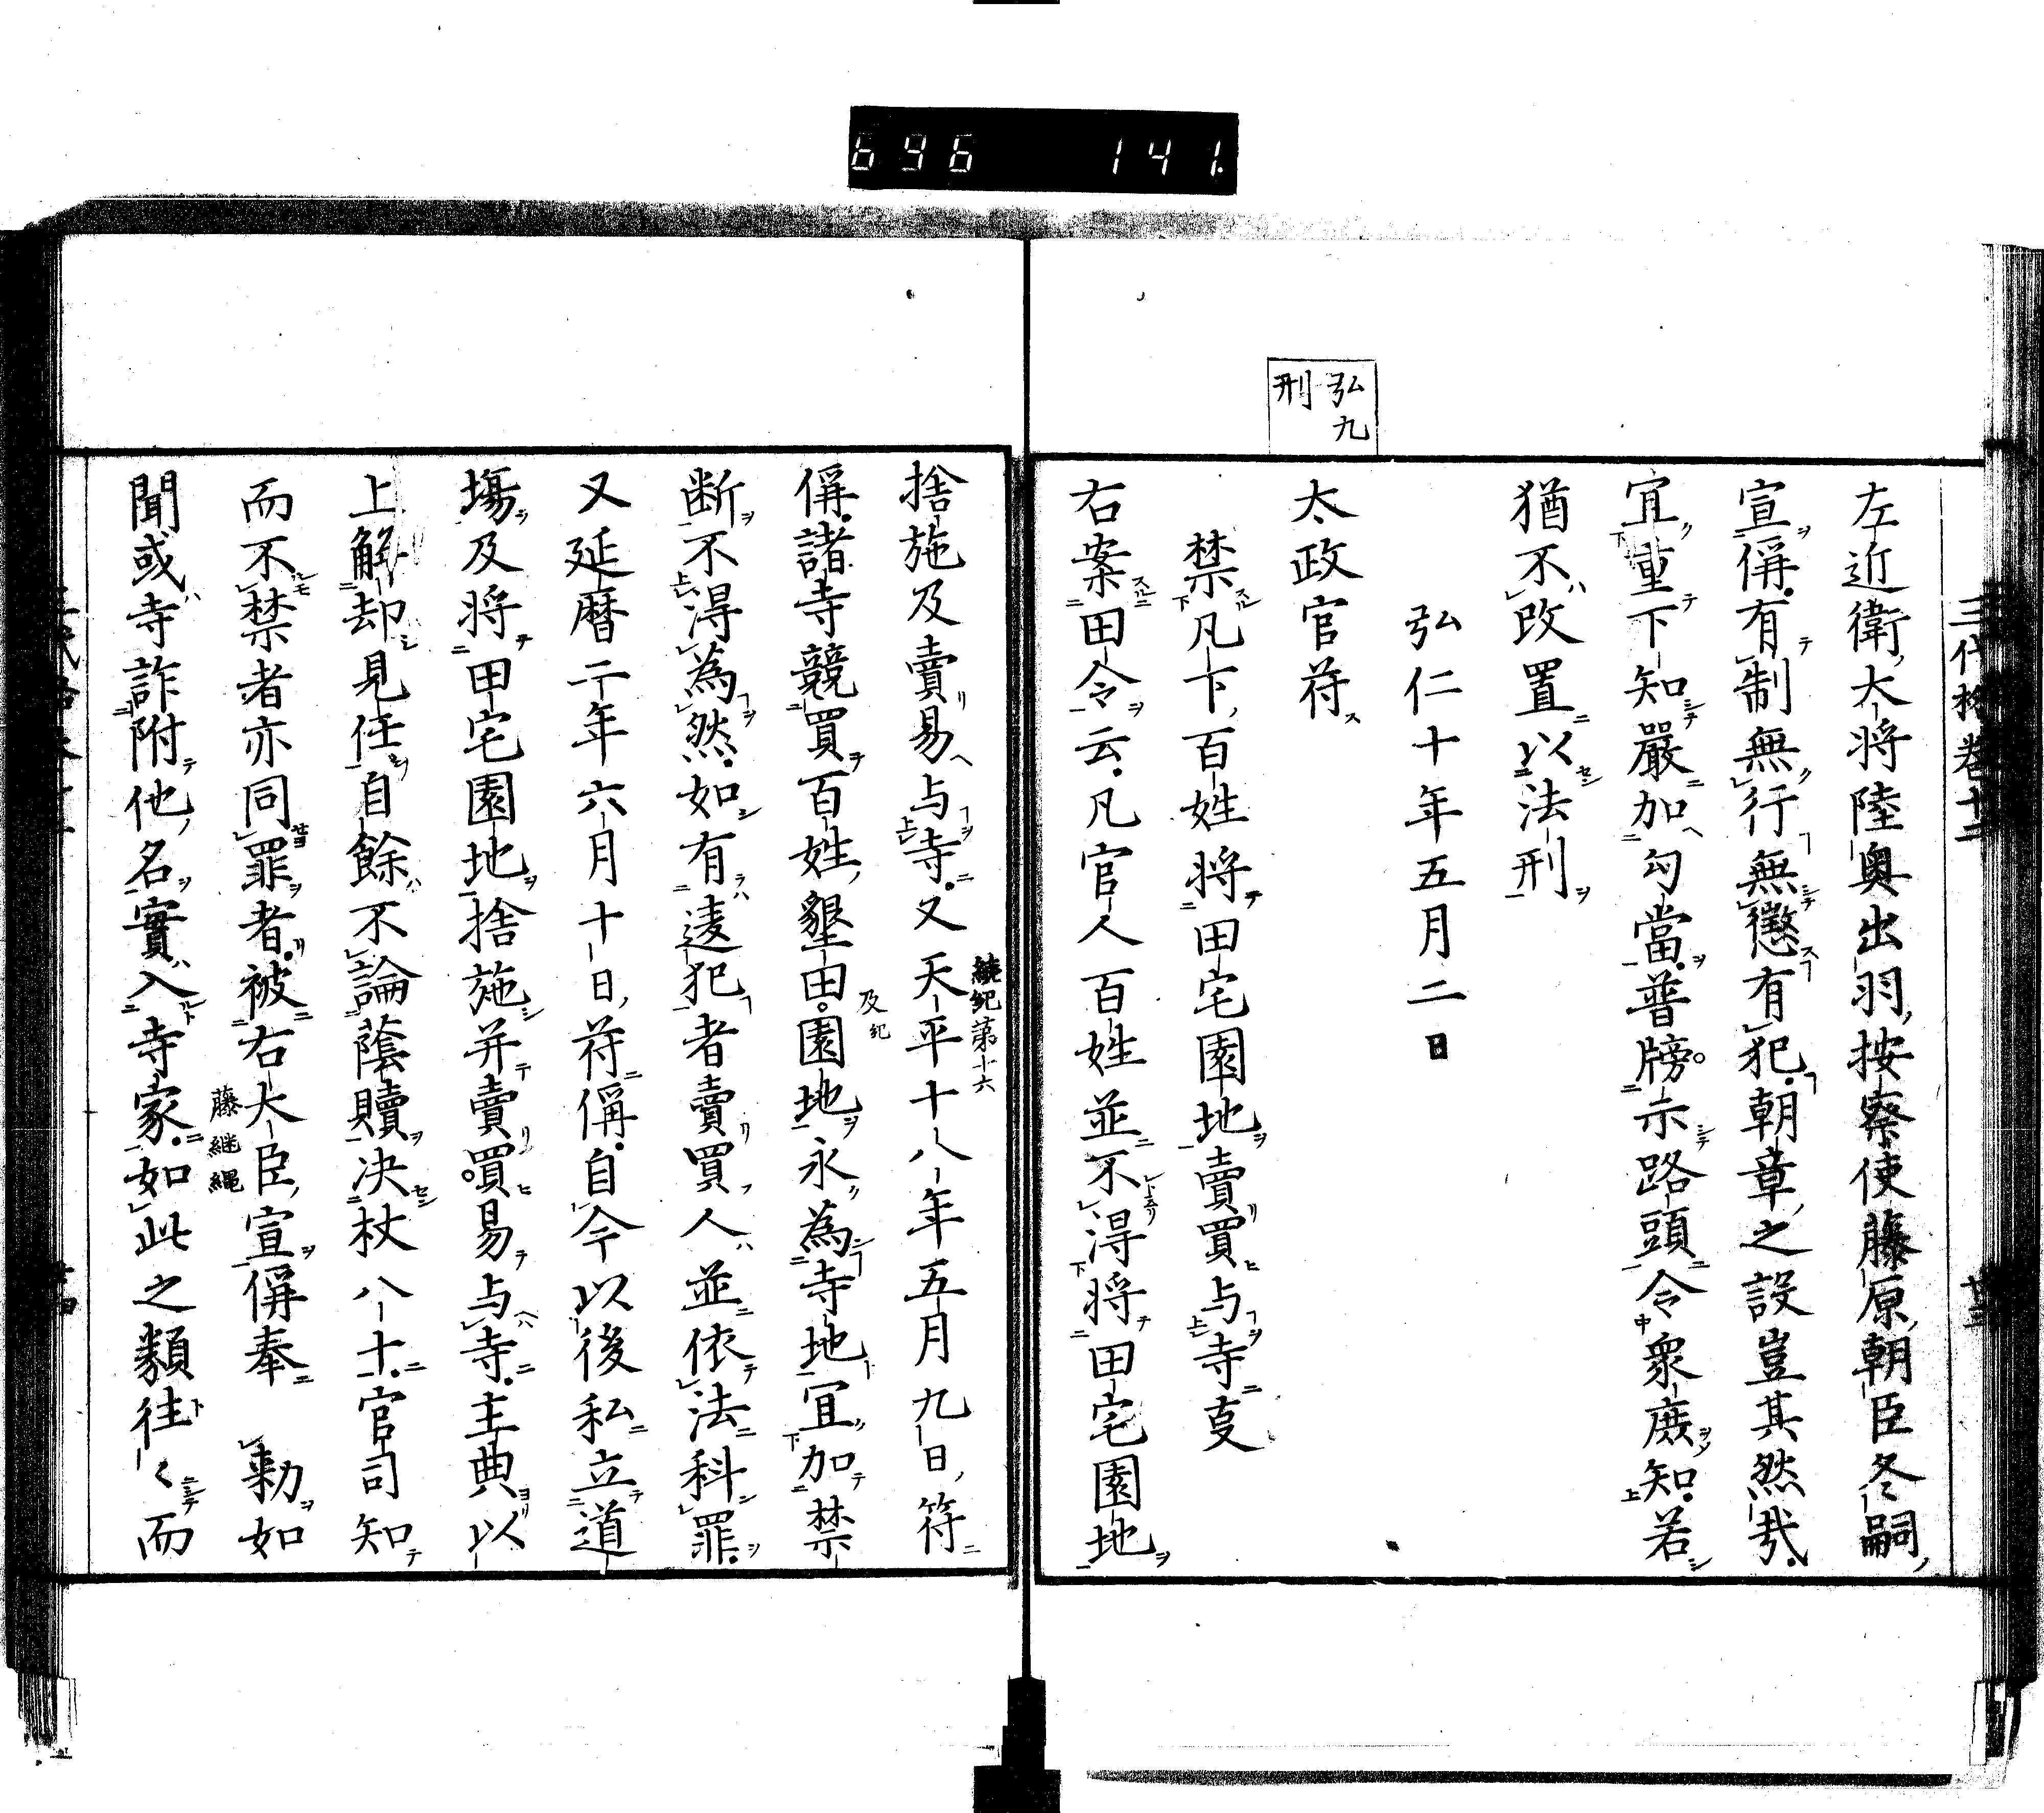 696 141.
三代格卷十二
左近衛大将陸奥出羽按察使藤原朝臣冬嗣
宣偁有制無行無懲有犯朝章之設豈其然哉
宜重下知嚴加勾當普牓示路頭令衆庶知若
猶不改置以法刑
弘仁十年五月二日
弘九
刑
太政官符
禁凡下百姓将田宅園地賣買与寺㕝
右案田令云凡官人百姓並不淂将田宅園地
捨施及賣易与寺又天平十八年五月九日符
續紀第十六
偁諸寺競買百姓墾田園地永為寺地宜加禁
及紀
断不淂為然如有違犯者賣買人並依法科罪
又延暦二年六月十日符偁自今以後私立道
塲及将田宅園地捨施并賣買易与寺主典以
上解却見任自餘不論蔭贖决杖八十官司知
而不禁者亦同罪者被右大臣宣偁奉 勅如
藤継縄
聞或寺詐附他名實入寺家如此之類往々而